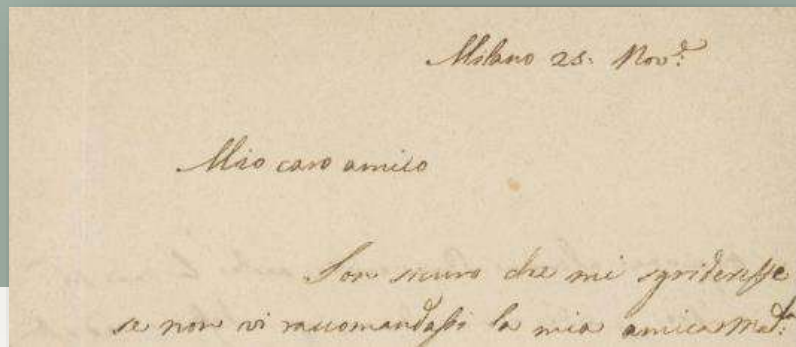 Milano 25. Nov.e
Mio caro amico
Son sicuro che mi sgridereste
se non vi raccomandassi la mia amica Mad.